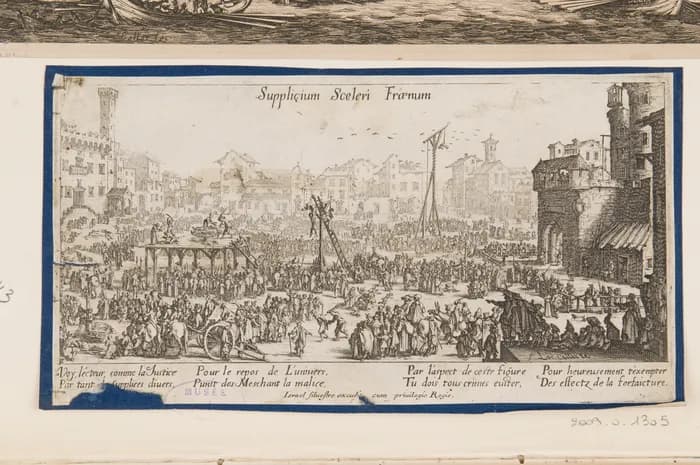 Supplicium Sceleri Frœnum
Voy, lecteur, comme la Justice Pour le repos de L'univers, Par l'aspect de ceste figure Pour heureusement t'exempter
Par tant de supplices divers, Punit des Meschant la malice. Tu dois tous crimes euiter, Des effectz de la forfaicture.
Israel siluestre excudit cum privilegio Regis.
MUSÉE
2009.0.1305